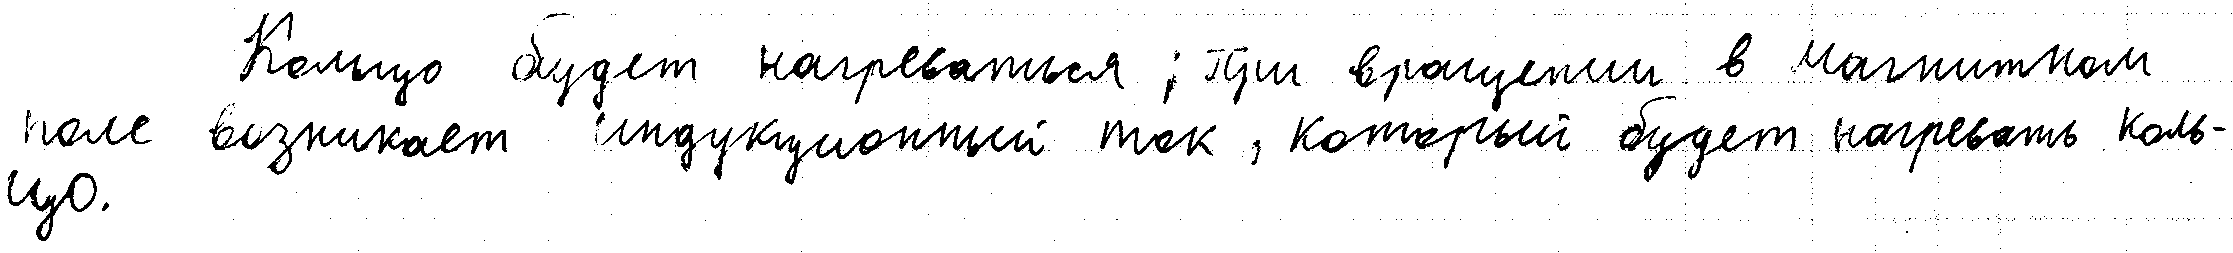 Кольцо будет нагреваться; при вращении в магнитном
поле возникает индукционный ток, который будет нагревать коль-
цо.